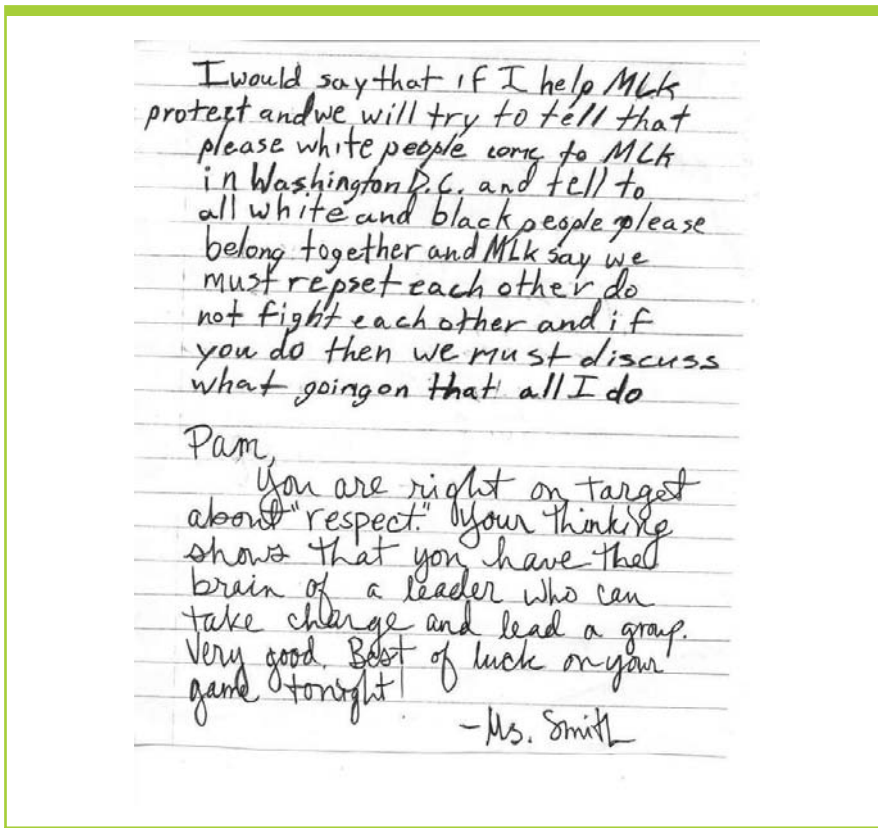 I would say that if I help MLK
protect and we will try to tell that
please white people come to MLK
in Washington D.C. and tell to
all white and black people please
belong together and MLK say we
must repset each other do
not fight each other and if
you do then we must discuss
what going on that all I do
Pam,
You are right on target
about "respect." Your thinking
shows that you have the
brain of a leader who can
take charge and lead a group.
Very good. Best of luck on your
game tonight!
-Ms. Smith